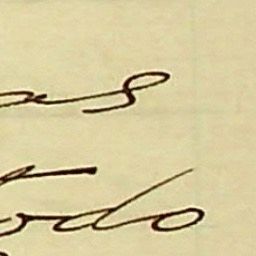 as
todo